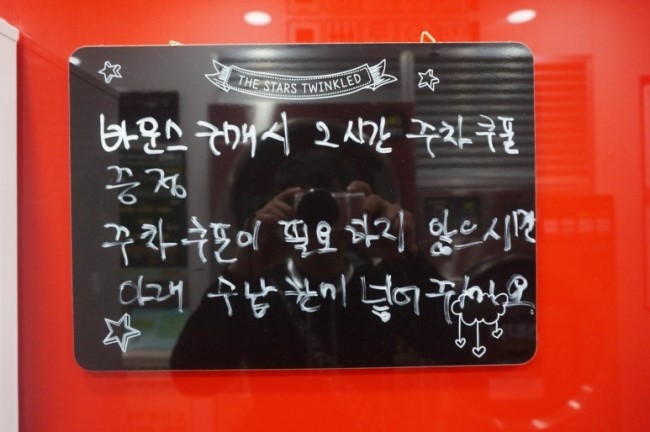 THE STARS TWINKLED
바운스 구매시 2시간 주차쿠폰
증정
주차쿠폰이 필요하지 않으시면
아래 수납 넣어주세요